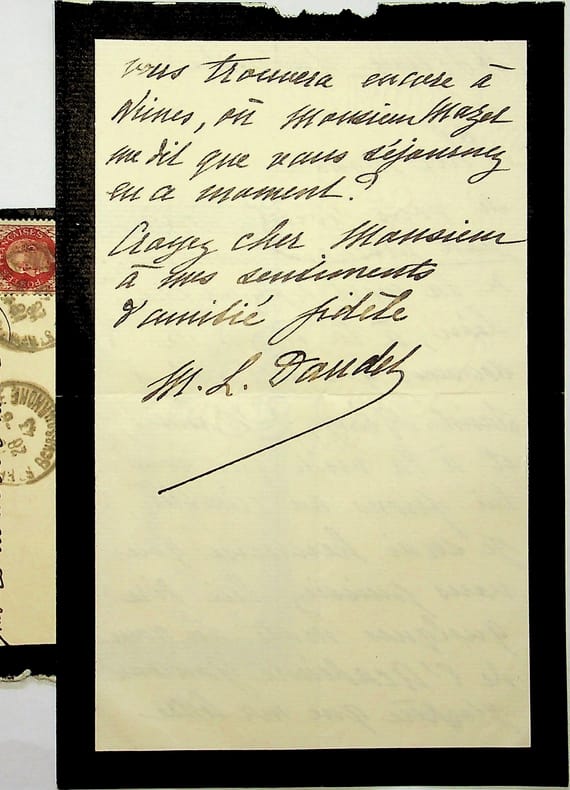 vous trouvera encore à
Nimes, où Monsieur Mazel
me dit que vous séjournez
en ce moment?
Croyez cher Monsieur
à mes sentiments
d'amitié fidèle
M. L. Daudet